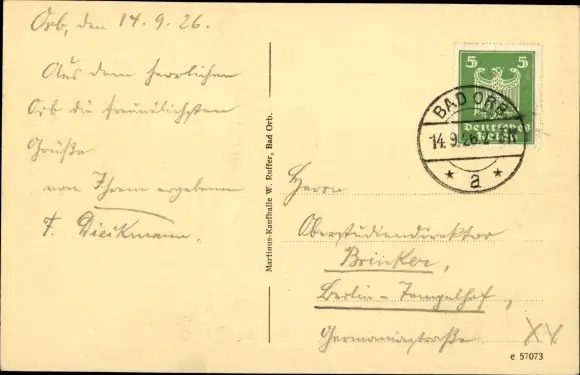 Orb, den 14.9.26.
Aus dem herrlichen
Orb die freundlichsten
Grüße
von Ihrem ergebenen
F. Dieckmann.
Martinus-Kaufhalle W. Ruffer, Bad Orb.
5 5
Deutsches
Reich
BAD ORB
14.9.26.
* a *
Herrn
Oberstudiendirektor
Brinker,
Berlin - Tempelhof,
Germaniastraße
e 57073